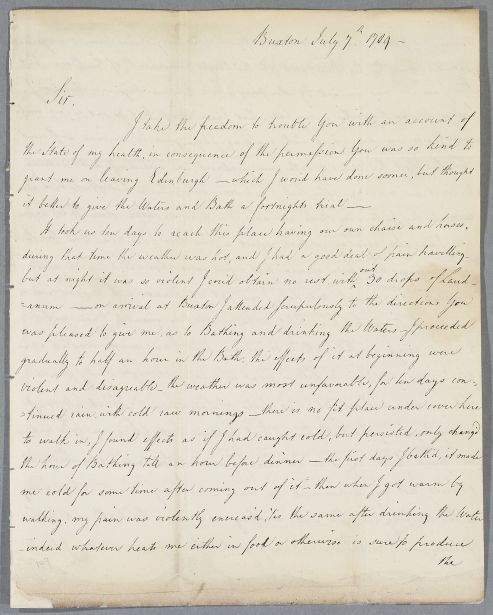 Buxton July 7th 1789 -
Sir,
I take the freedom to trouble You with an account of
the State of my health, in consequence of the permission You was so kind to
grant me on leaving Edinburgh - which I woud have done sooner, but thought
it better to give the Waters and Bath a fortnights trial -
It took us ten days to reach this place having our own chaise and horses,
during that time the weather was hot, and I had a good deal of pain travelling
but at night it was so violent I coud obtain no rest without 30 drops of Laud-
=anum - on arrival at Buxton I attended scrupulously to the directions You
was pleased to give me, as to Bathing and drinking the Waters - I proceeded
gradually to half an hour in the Bath, the effects of it at beginning were
violent and disagreable - the weather was most unfavorable, for ten days con-
=tinued rain with cold raw mornings - there is no fit place under cover here
to walk in, I found effects as if I had caught cold, but persisted, only chang'd
the hour of Bathing till an hour before dinner - the first days I bath'd, it made
me cold for some time after coming out of it - then when I got warm by
walking, my pain was violently encreas'd, 'tis the same after drinking the Water
- indeed whatever heats me either in food or otherwise is sure to produce
the